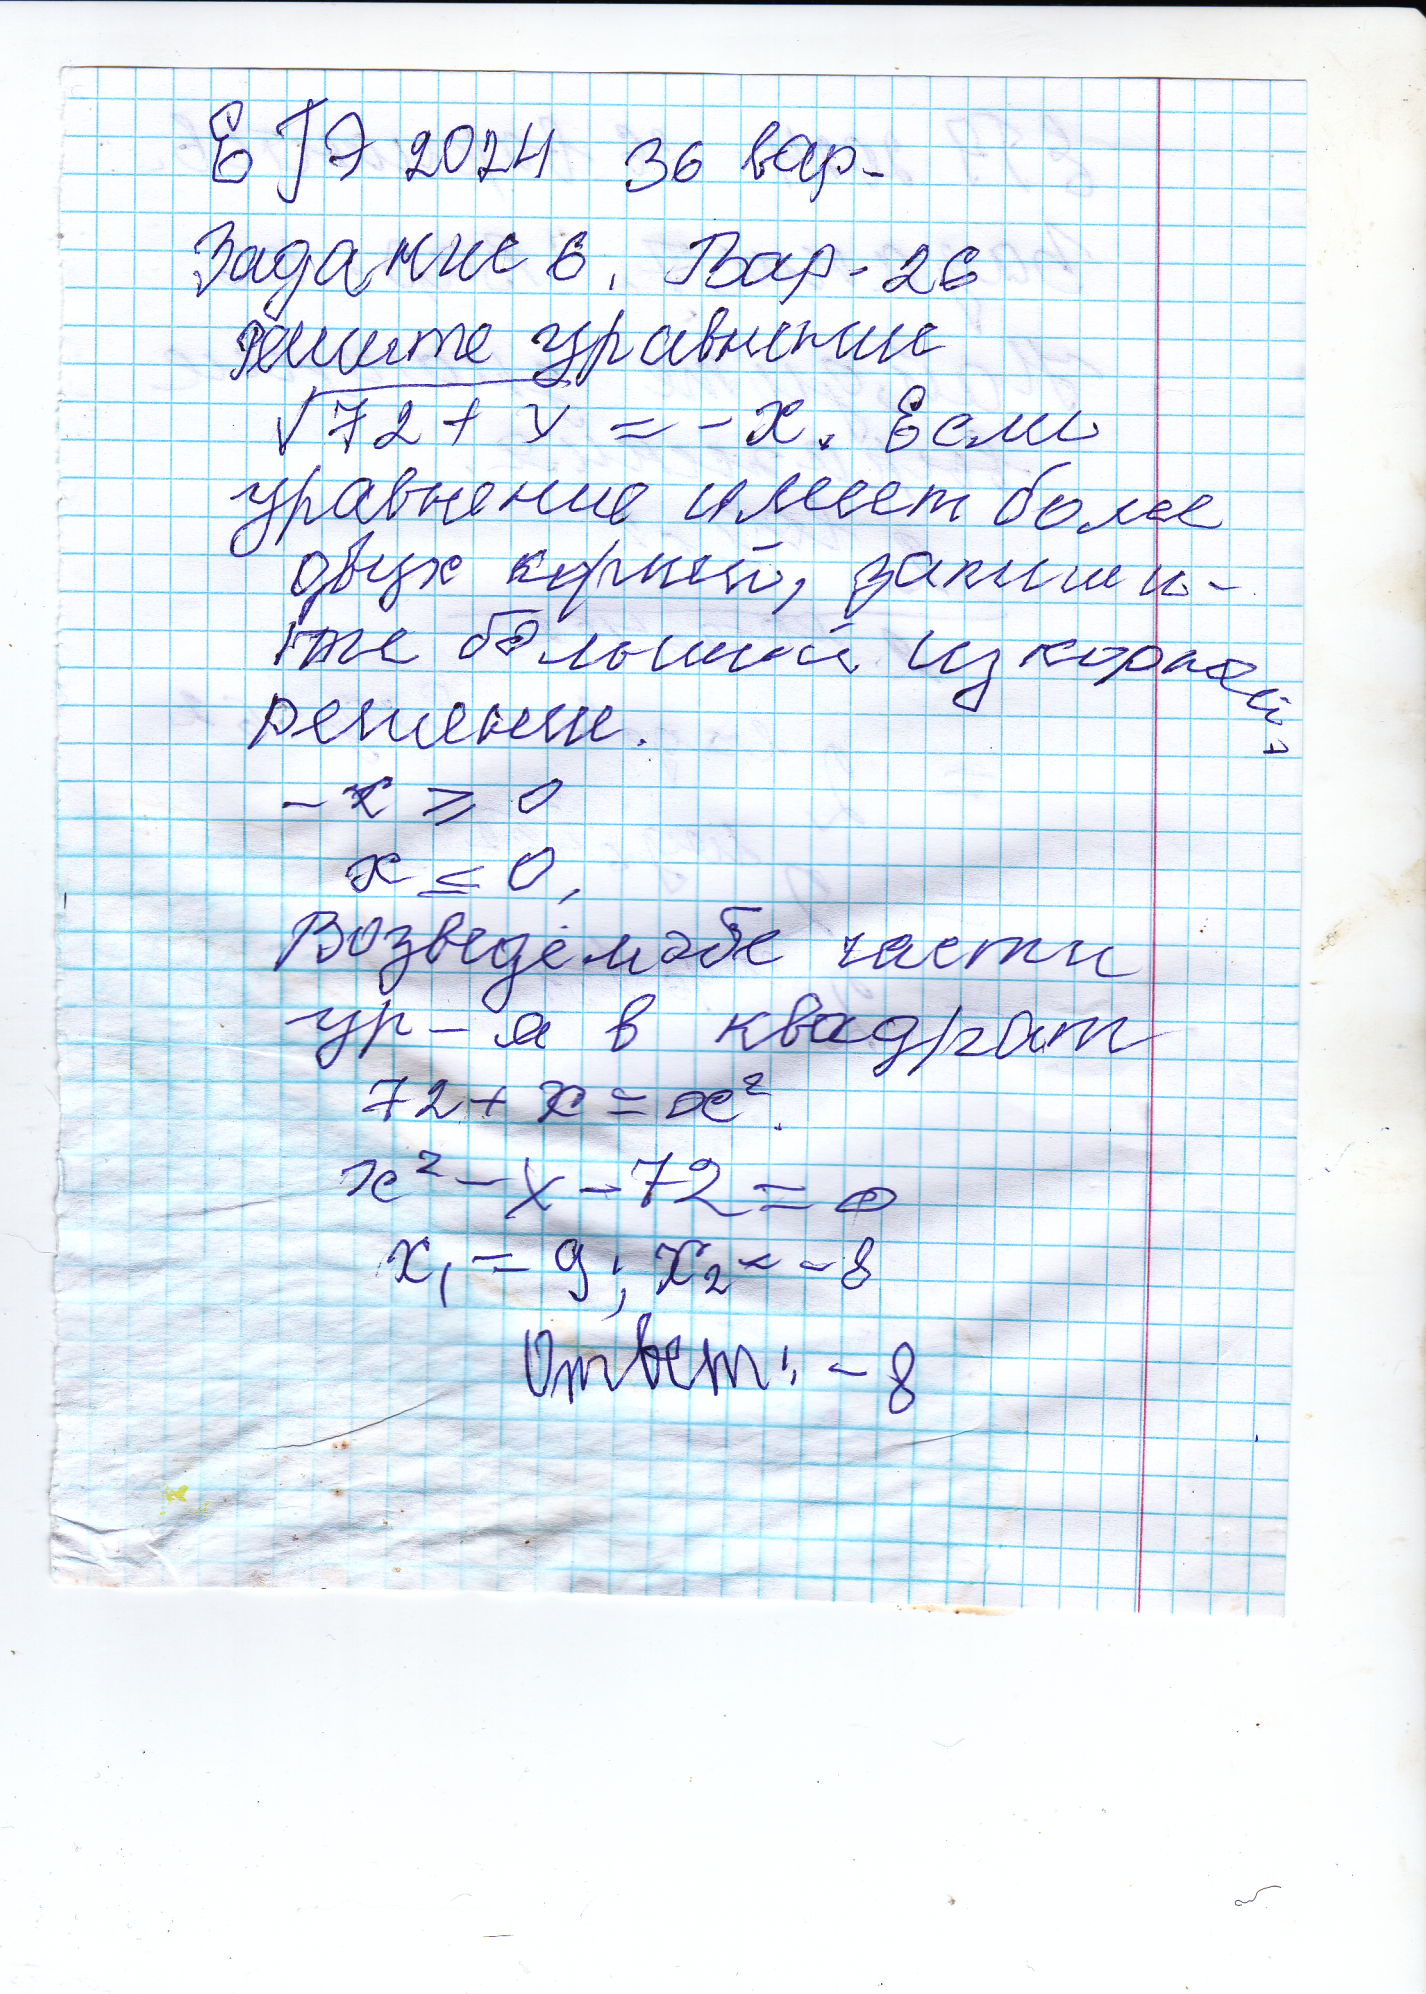 ЕГЭ 2024 36 вар-
Задание 6. Вар-26
Решите уравнение
√72+x = -x. Если
уравнение имеет более
двух корней, запиши-
те больший из корней.
Решение.
-x ≥ 0
x ≤ 0,
Возведём обе части
ур-я в квадрат
72+x=x².
x²-x-72=0
x₁=9; x₂=-8
Ответ: -8